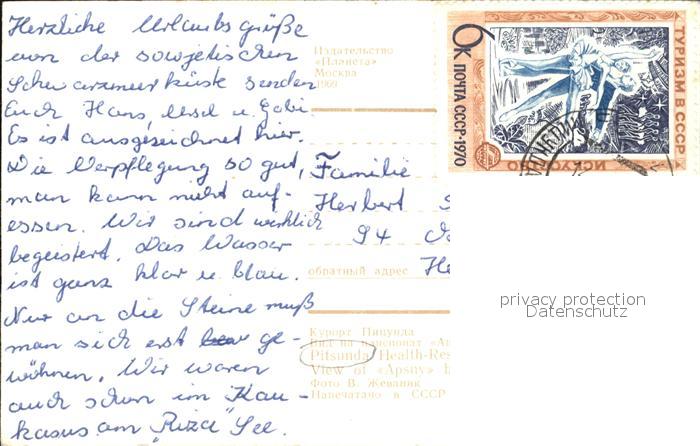 Herzliche Urlaubsgrüße
von der sowjetischen
Schwarzmeerküste senden
Euch Hans, Ursel u. Gabi.
Es ist ausgezeichnet hier.
Die Verpflegung so gut,
man kann nicht auf-
essen. Wir sind wirklich
begeistert. Das Wasser
ist ganz klar u. blau.
Nur an die Steine muß
man sich erst ge-
wöhnen. Wir waren
auch schon im Kau-
kasus am „Riza" See.
Издательство
«Планета»
Москва
1969
6К ПОЧТА СССР·1970
ТУРИЗМ В СССР
Familie
Herbert
94
обратный адрес
Курорт Пицунда
Вид на пансионат
Pitsunda Health-Res
View of «Apsny» b
Фото В. Жеваник
Напечатано в СССР
privacy protection
Datenschutz